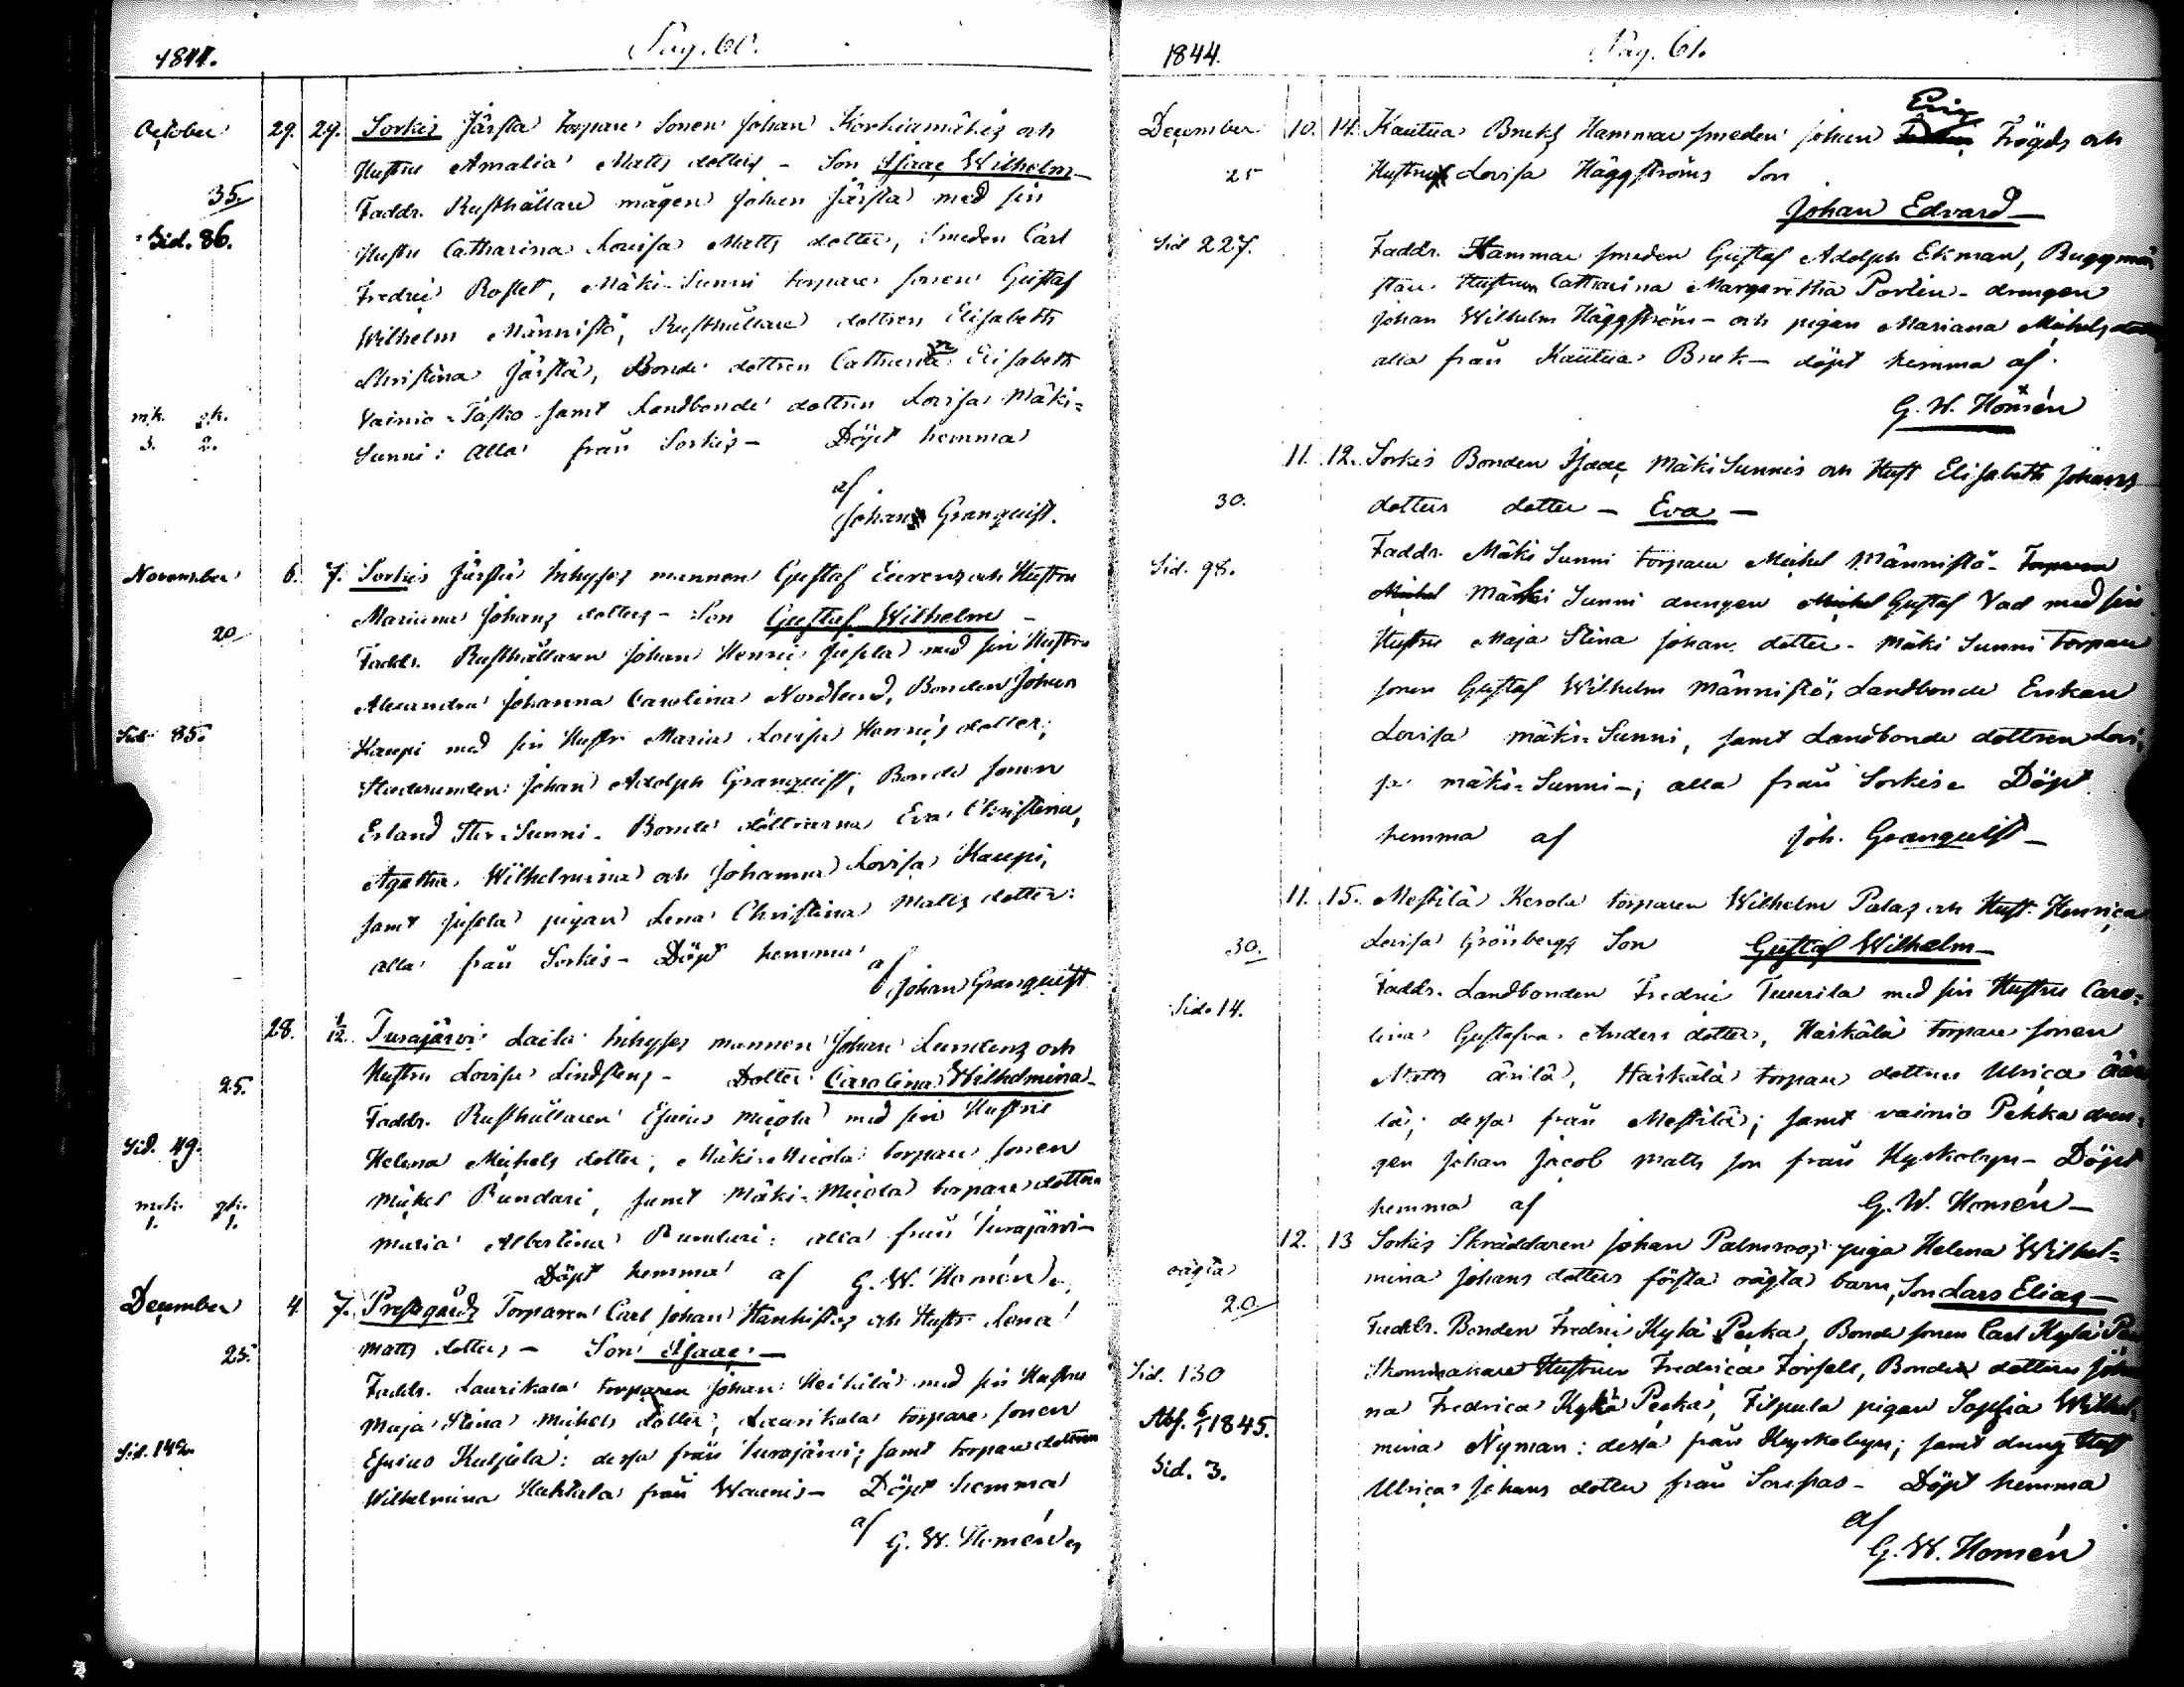 1844.
Pag. 60.
October 29. 29. Sorkis Järsta torpare Sonen Johan Korkiamäkis och
Hustru Amalia Matts dotters - Son Isaac Wilhelm -
35.
Faddr. Rusthållare mågen Johan Järsta med sin
Sid. 86.
Hustru Catharina Lovisa Matts dotter, Smeden Carl
Fredric Roslet, Mäki-Sunni torpare sonen Gustaf
Wilhelm Männistö, Rusthållare dottren Elisabeth
Christina Järstä, Bonde dottren Catharina Elisabeth
mk. gk.
Vainio-Tasko samt Landbonde dottren Lovisa Mäki=
3. 2.
Sunni: alla från Sorkis - Döpt hemma
af
Johan Granquist.
November 6. 7. Sorkis Järstä Inhyses mannen Gustaf och Hustru
Mariana Johans dotters - Son Gustaf Wilhelm -
20
Faddr. Rusthållaren Johan Henric Jusela med sin Hustru
Alexandra Johanna Carolina Nordlund, Bonden Johan
Sid. 85.
Kaupi med sin Hustr. Maria Lovisa Henrics dotter,
Johan Adolph Granquist, Bonde sonen
Erland Sunni. Bonde döttrarna Eva Christina,
Agatha Wilhelmina och Johanna Lovisa Kaupi,
samt Jusela pigan Lena Christina Matts dotter:
alla från Sorkis - Döpt hemma
af Johan Granquist
28. 1/12. Turajärvi Laila Inhyses mannen Johan och
Hustru Lovisa Lindstens - Dotter Carolina Wilhelmina -
25.
Faddr. Rusthållaren Esaias Micola med sin Hustru
Sid. 49.
Helena Michels dotter, Mäki-Micola torpare sonen
Michel Rundari, samt Mäki-Micola torpare dottren
mk. gk.
1. 1.
Maria Albertina Rundari: alla från Turajärvi -
Döpt hemma af G. W. Homén
December 4. 7. Prestgårds Torparen Carl Johan Hanhistos och Hustr. Lena
Matts dotters - Son Isaac -
25.
Faddr. Laurikala torparen Johan Heikilä med sin Hustru
Maja Stina Michels dotter, Laurikala torpare sonen
Sid. 142
Esaias Kuljula: dessa från Turajärvi; samt torpare dottren
Wilhelmina Huhtala från Waenis - Döpt hemma
af
G. W. Homén
1844.
Pag. 61.
December 10. 14. Kauttua Bruks Hammar smeden Johan Eric Frögds och
25
Hustrus Lovisa Häggströms Son
Johan Edvard -
Sid 227.
Faddr. Hammar smeden Gustaf Adolph Ekman, Byggmä
stare Hustrun Catharina Margaretha Portin - drengen
Johan Wilhelm Häggström - och pigan Mariana Michels dotter
alla från Kauttua Bruk - döpt hemma af
G. W. Homén
11. 12. Sorkis Bonden Isaac Mäki Sunnis och Hust Elisabeth Johans
30.
dotters dotter - Eva -
Sid. 98.
Faddr. Mäki Sunni torparen Michel Männistö - Torparen
Michel Mäki Sunni drengen Michel Gustaf Vad med sin
Hustru Maja Stina Johans dotter - Mäki Sunni torpare
sonen Gustaf Wilhelm Männistö, Landbonde Enkan
Lovisa Mäki-Sunni, samt Landbonde dottren Lovi=
sa Mäki-Sunni -; alla från Sorkis Döpt
hemma af Joh. Granquist -
11. 15. Mestilä Kerola torparen Wilhelm Palas och Hust. Henrica
30.
Lovisa Grönbergs Son Gustaf Wilhelm -
Faddr. Landbonden Fredric Tuurila med sin Hustru Caro=
Sid. 14.
lina Gustafva Anders dotter, Haskälä torpare sonen
Matts Ärilä, Haskälä torpare dottren Ulrica Ää
lä; dessa från Mestilä; samt Vainio Pekka dren=
gen Johan Jacob Matts son från Kyrkobyn - Döpt
hemma af G. W. Homén -
12. 13 Sorkis Skräddaren Johan Palmroos piga Helena Wilhel=
oägta
mina Johans dotters första oägta barn, Son Lars Elias -
20
Faddr. Bonden Fredric Kylä Pekka, Bonde sonen Carl Kylä Pe
Sid. 130
Skomakare Hustrun Fredrica Forsell, Bonde dottren Johan
na Fredrica Kylä Pekka, Filpula pigan Sophia Wilhel
Abf. 6/1 1845.
mina Nyman: dessa från Kyrkobyn; samt dreng Hust
Sid. 3.
Ulrica Johans dotter från Sorkis - Döpt hemma
af
G. W. Homén